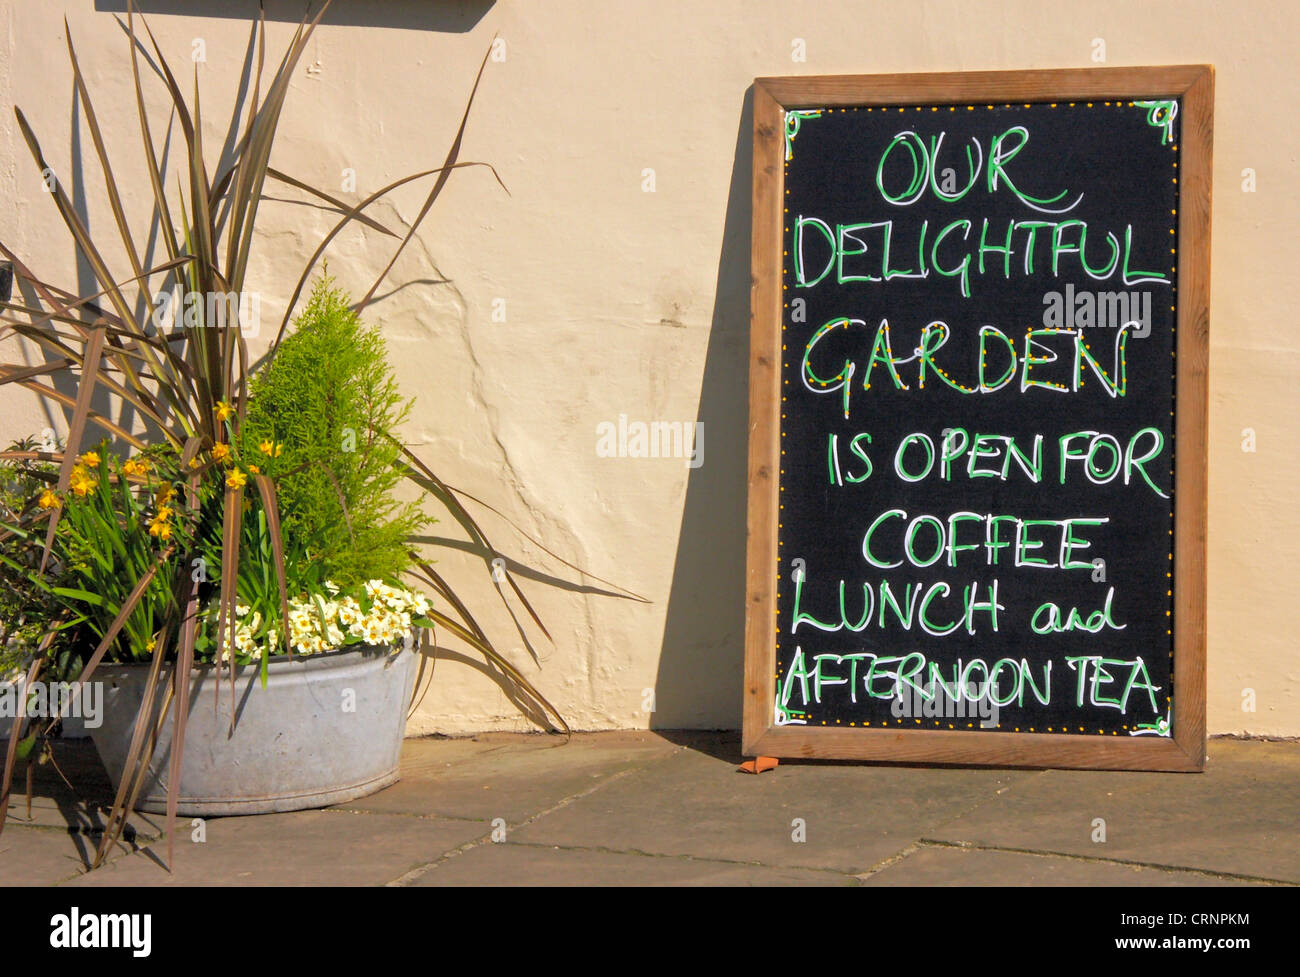 OUR
DELIGHTFUL
GARDEN
IS OPEN FOR
COFFEE
LUNCH and
AFTERNOON TEA
alamy
alamy
Image ID: CRNPKM
www.alamy.com